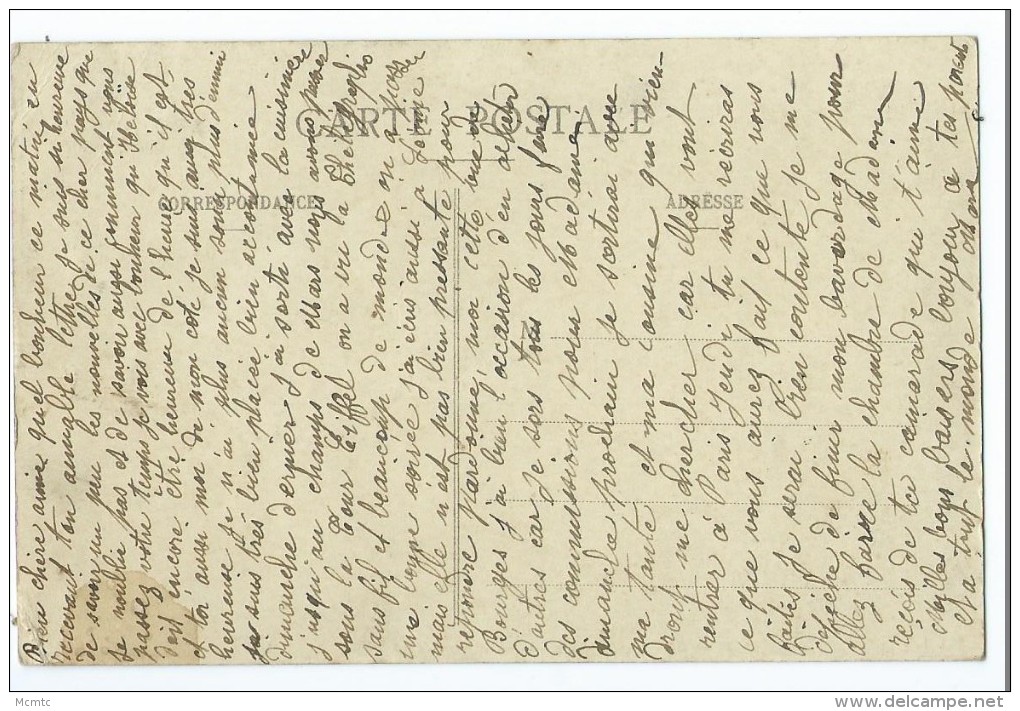 Bien chere amie quel bonheur ce matin en
recevant ton aimable lettre je suis si heureuse
de savoir un peu les nouvelles de ce cher pays que
je noublie pas et de savoir aussi comment vous
passez votre temps je vois avec bonheur qu Heloise
doit encore être heureuse de l heure qu il est
et toi aussi moi de mon coté je suis aussi tres
heureuse je n ai plus aucun souci plus d ennui
je suis très bien placée bien accoutumée
dimanche dernier j ai sorti avec la cuisinière
jusqu au champs de Mars nous avons passer
sous la Tour Eiffel on a vu la Thélégrafie
sans fil et beaucoup de monde on a passé
une bonne soirée j ai écris aussi a Leonie
mais elle n est pas bien pressante pour
repondre pardonne moi cette vue de
Bourges j ai bien l occasion d en acheter
D autres car je sors tous les jours faire
des commissions pour Madame
Dimanche prochain je sortirai avec
ma tante et ma cousine qui vien-
dront me chercher car elles vont
rentrer à Paris Jeudi tu me reciras
ce que vous aurez fait ce que vous
faites je serai bien contente je me
depeche de finir mon bavardage pour
allez faire la chambre de Madame
reçois de ta camarade qui t aime
mille bons baisers bonjour a tes parents
et a tout le monde
CARTE POSTALE
CORRESPONDANCE
ADRESSE
Mcmtc
delcampe.net